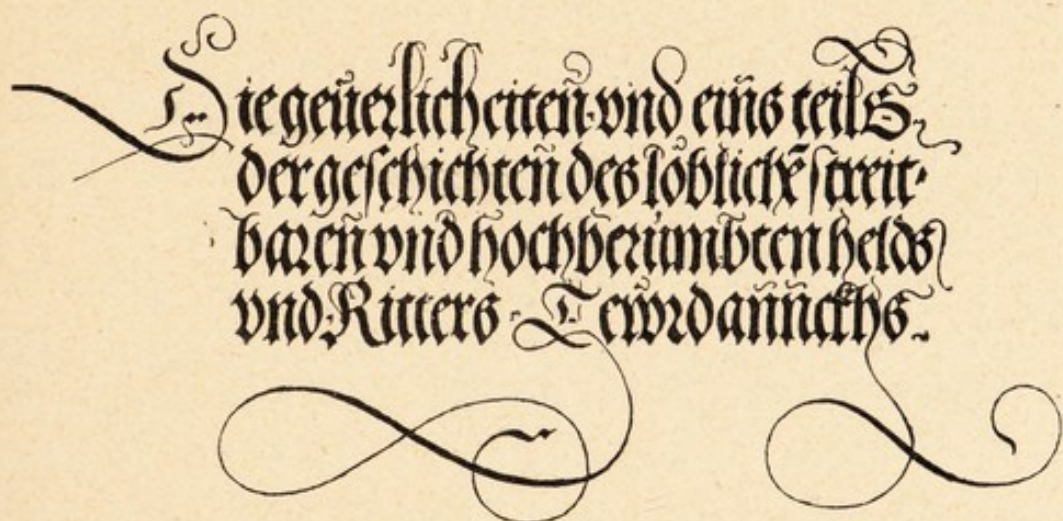 Die geűerlicheiteñ vnd eins teils
der geschichteñ des löblichē streit⸗
bareñ vnd hochberümbten helds
vnd Ritters Tewrdañnckhs